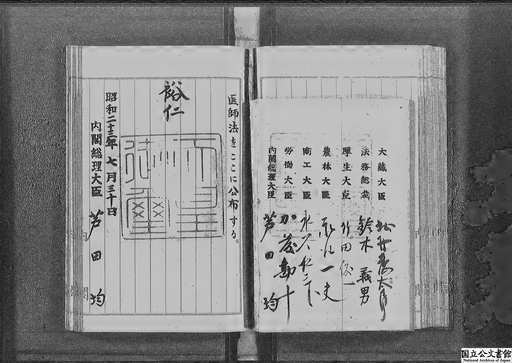 大蔵大臣
法務総裁 鈴木義男
厚生大臣 竹田儀一
農林大臣 永江一夫
商工大臣
労働大臣 加藤勘十
内閣総理大臣 芦田均
医師法をここに公布する。
裕仁
天皇御璽
昭和二十三年七月三十日
内閣総理大臣 芦田均
国立公文書館
National Archives of Japan